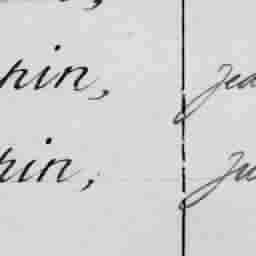 hin, Jea
hin, Ju